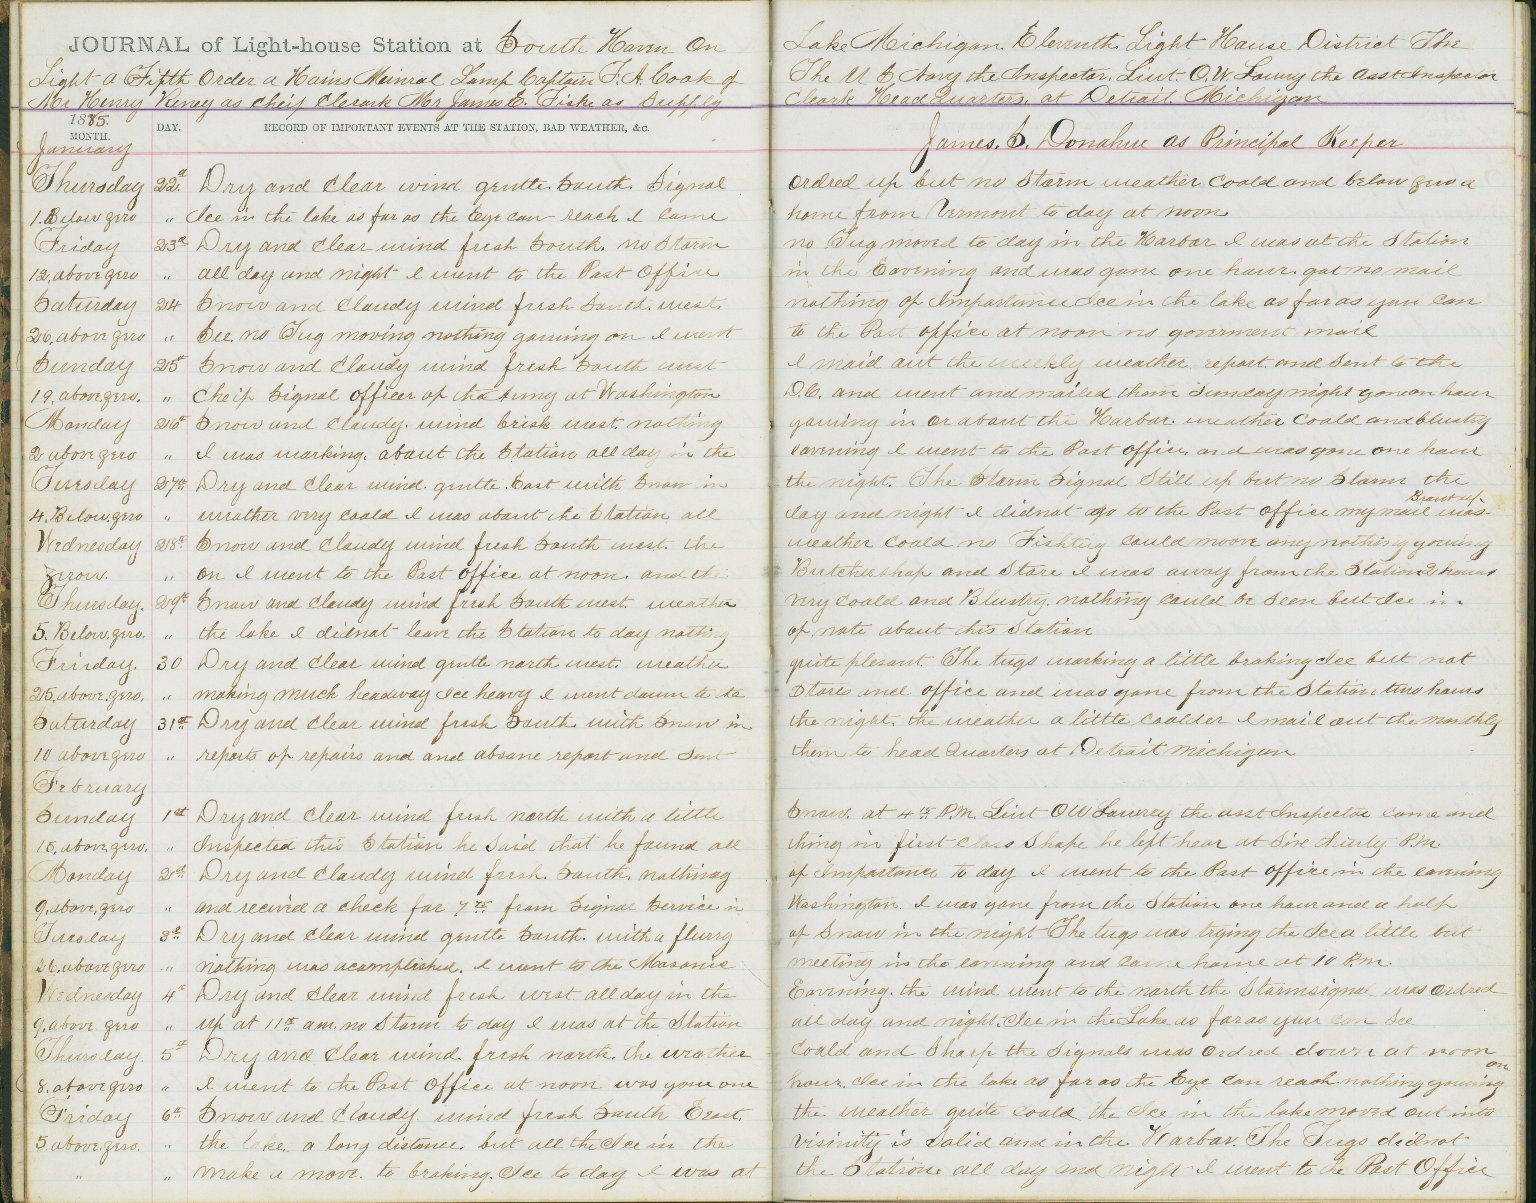 JOURNAL of Light-house Station at South Haven On Lake Michigan. Eleventh Light House District The
Light a Fifth Order a Hains Meinral Lamp Captain F. A. Cook of The U S Navy the Inspector. Liut. O. W. Lowry the asst Inspector
Mr Henry Keney as cheif Clerark Mr James E. Fiske as Supply Cleark Head Quarters, at Detrait, Michigan
1885. MONTH. DAY. RECORD OF IMPORTANT EVENTS AT THE STATION, BAD WEATHER, &c. James. S. Donahue as Principal Keeper
January
Thursday 22d Dry and Clear wind gentle. South. Signal ordred up but no Starm weather coald and below zero a
1. Below zero " Ice in the lake as far as the Eye can reach I came home from Vermont to day at noon
Friday 23d Dry and Clear wind fresh South. no Starm no Tug moved to day in the Harbar I was at the Station
12, above zero " all day and night I went to the Past Office in the Eavening and was gone one haur. got no mail
Saturday 24 Snow and Claudy wind fresh South. west. nothing of Impartance Ice in the lake as far as you can
26, above zero " See. no Tug moving nothing gowing on I went to the Past office at noon no goverment mail
Sunday 25t Snow and Claudy wind fresh South west I maid aut the weekly weather, repart. and Sent to the
19, above zero. " Cheif Signal officer of the army at Washington D.C. and went and mailed them Sunday night gon on haur
Monday 26t Snow and Claudy. wind brisk west. nothing gowing in or about the Harbar. weather Coald and blustry
2 above zero " I was warking. about the Station all day in the eavening I went to the Past office, and was gone one haur
Tuesday 27th Dry and Clear wind. gentle. East with Snow in the night. The Starm Signal Still up but no Starm the
4. Below. zero " weather very coald I was about the Station all day and night I didnat go to the Past office my mail was Braut up.
Wednesday 28th Snow and Claudy wind fresh South west. the weather Coald no Fishtug could moove any nothing gowing
zerow. " on I went to the Past office at noon. and the Butchershap and Stare I was away from the Station 2 haurs
Thursday. 29th Snow and Claudy wind fresh South west. weather very coald and Blustry. nothing could be Seen but Ice in
5. Below. zero. " the lake I didnat leave the Station to day nothing of, nate about this Station
Friday. 30 Dry and Clear wind gentle north west. weather quite plesant. The tugs warking a little braking Ice but not
25, above, zero, " making much headway Ice heavy I went dawn to the Stares and office and was gone from the Station two haurs
Saturday 31st Dry and Clear wind fresh South with Snow in the night, the weather a little coalder I maid out the monthly
10 above zero " reports of repairs and and absane report and Sent them to head Quarters at Detrait michigan
February
Sunday 1st Dry and Clear wind fresh north with a little Snow. at 4th P.M. Liut O W Lowrey the asst Inspector came and
15, above, zero. " Inspected this Station he Said that he found all thing in first Class Shape he left hear at five thirty P.M
Monday 2d Dry and Claudy wind fresh. South. nothinag of Impartance to day I went to the Past office in the eavening
9, above, zero " and recived a check far 7 from Signal Service in Washington. I was gone from the Station one haur and a half
Tuesday 3d Dry and Clear wind gentle South. with a flurry of Snow in the night The tugs was trying the Ice a little but
26. above zero " nothing was acamplished. I went to the Masonic meeting in the eavening and came home at 10 P.M.
Wednesday 4th Dry and Clear wind fresh west all day in the Eavening. the wind went to the north the Starmsignal was ordred
9, above zero " up at 11th am. no Starm to day I was at the Station all day and night. Ice in the Lake as far as you can See
Thursday. 5th Dry and Clear wind. fresh north. the weather Coald and Sharp the Signals was ordred down at noon
8. above zero " I went to the Past Office at noon was gone one haur. Ice in the lake as far as the Eye can reach nothing gowing on
Friday 6th Snow and Claudy wind fresh South East. the weather quite coald, the Ice in the lake moved out into
5. above. zero. " the lake. a long distance. but all the Ice in the visinity is Salid and in the Harbar. The Tugs didnot
" " make a move. to braking. Ice to day I was at the Station all day and night I went to the Past Office